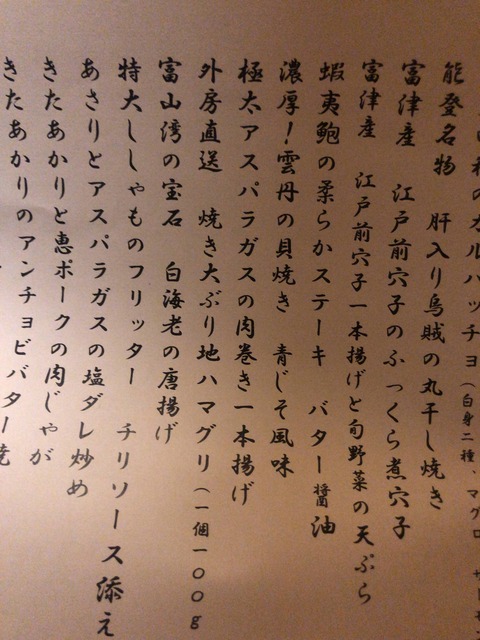 のカルパッチョ(白身二種、マグロ、サ
能登名物 肝入り烏賊の丸干し焼き
富津産 江戸前穴子のふっくら煮穴子
富津産 江戸前穴子一本揚げと旬野菜の天ぷら
蝦夷鮑の柔らかステーキ バター醤油
濃厚!雲丹の貝焼き 青じそ風味
極太アスパラガスの肉巻き一本揚げ
外房直送 焼き大ぶり地ハマグリ(一個一〇〇g
富山湾の宝石 白海老の唐揚げ
特大ししゃものフリッター チリソース添え
あさりとアスパラガスの塩ダレ炒め
きたあかりと恵ポークの肉じゃが
きたあかりのアンチョビバター焼